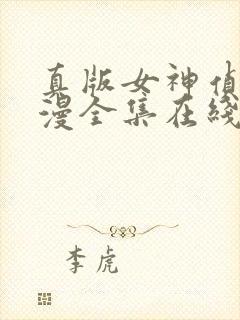 真版女神侦
漫全集在线
李虎